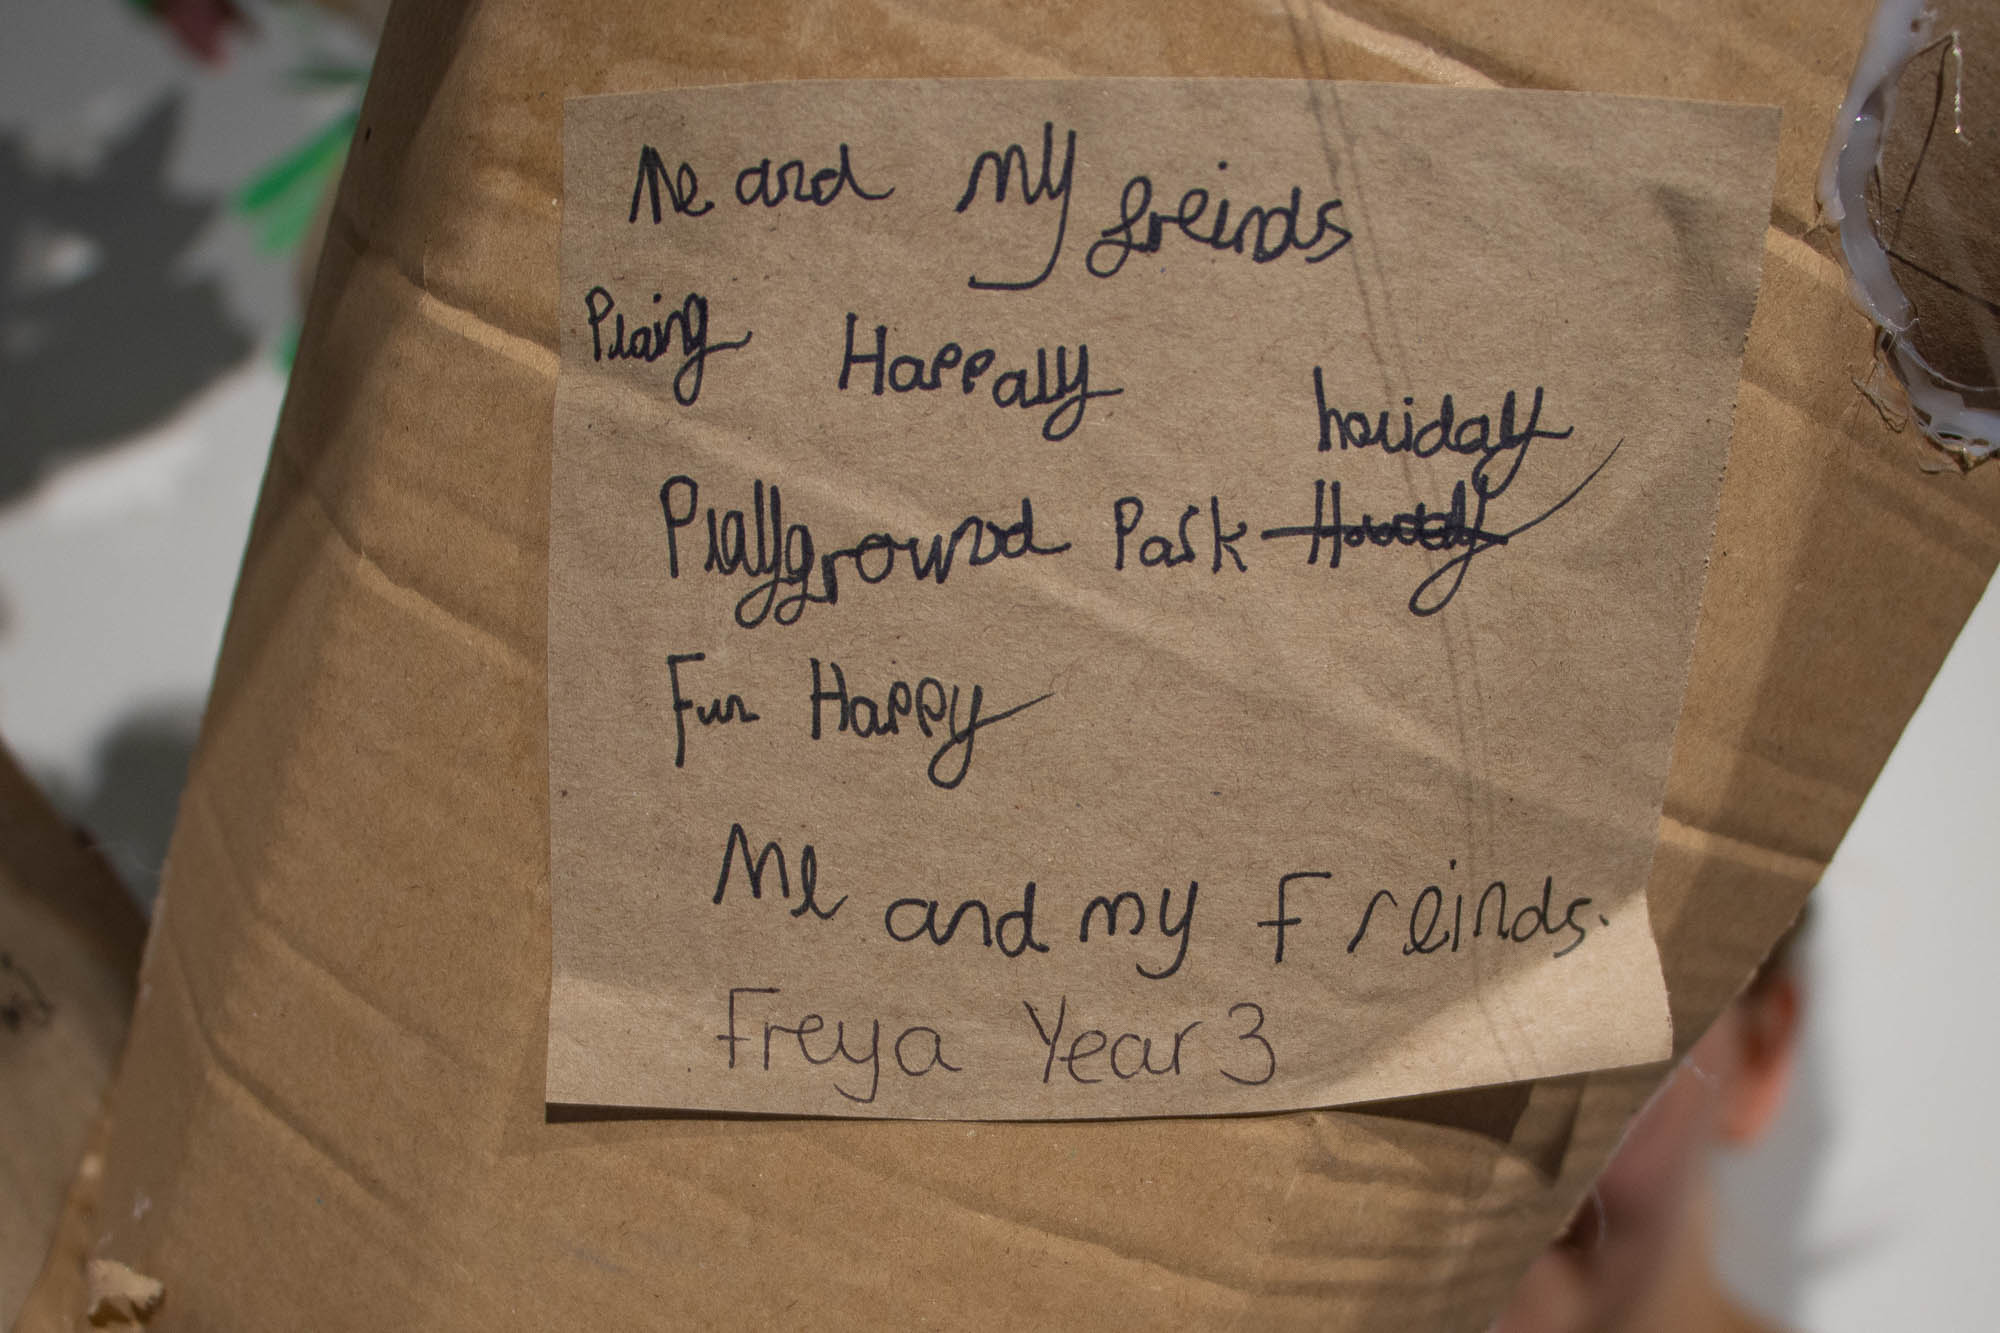 Me and my freinds
Plaing Happally
holiday
Playground Park
Fun Happy
Me and my Freinds.
Freya Year 3